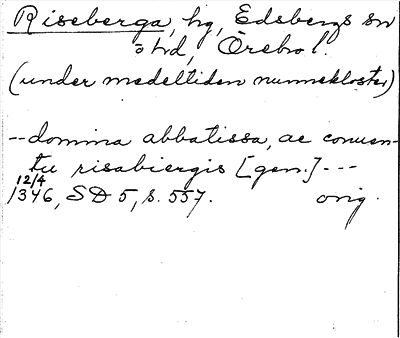 Riseberga, hg, Edsbergs sn
o hd, Örebro l.
(under medeltiden nunnekloster)
--domina abbatissa, ac conuen-
tu risabiergis [gen.]---
12/4
1346, SD 5, s. 557. orig.